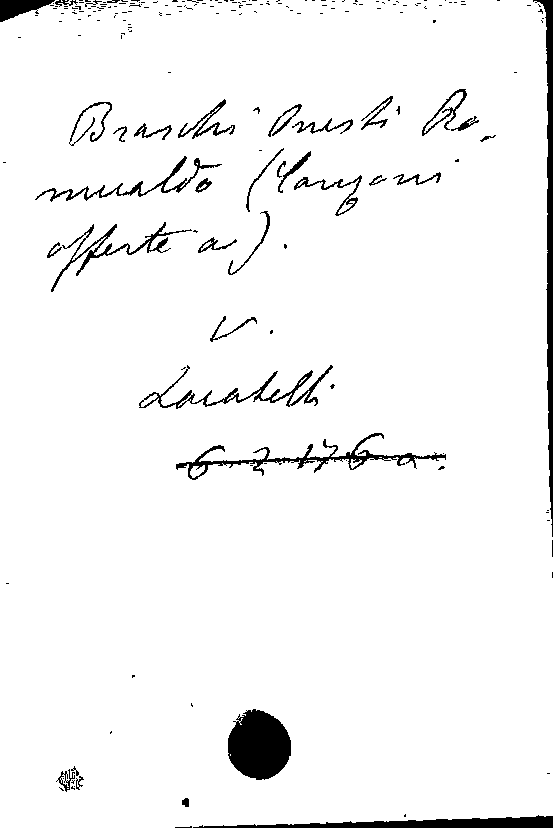 Braschi Onesti Ro-
mualdo (Canzoni
offerte a).
V.
Locatelli
6 2 17 6 a.